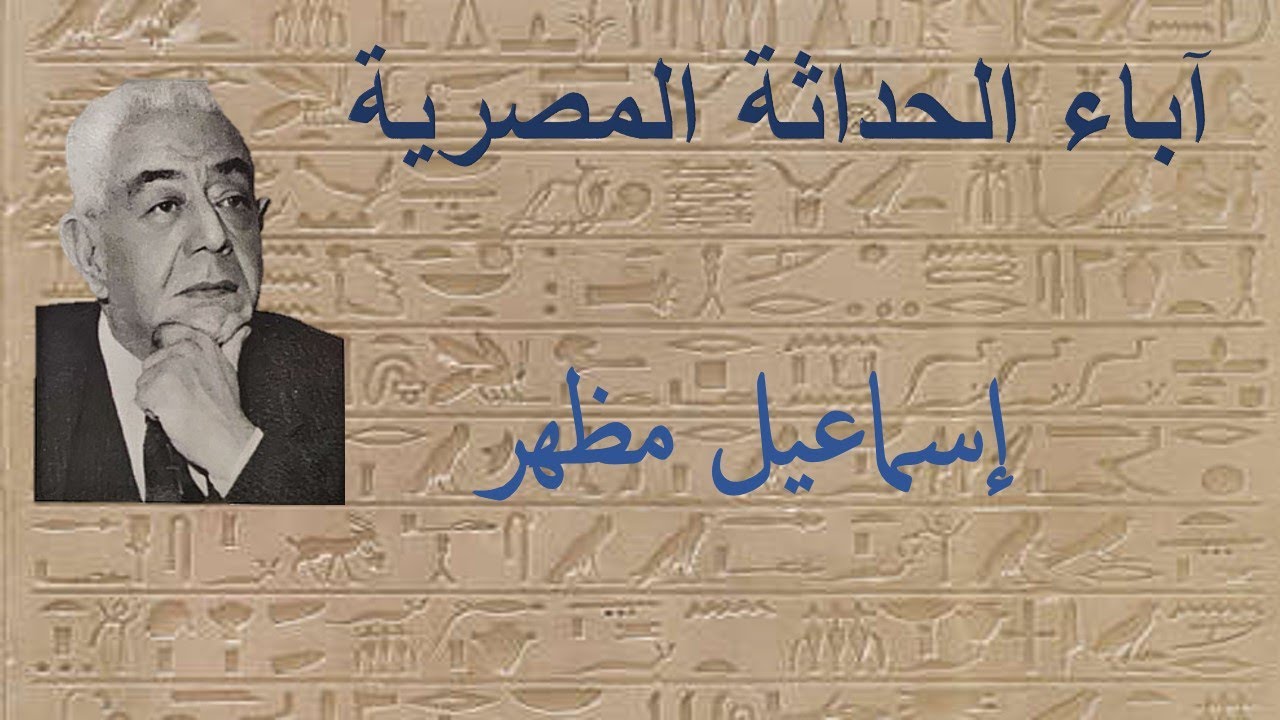 آباء الحداثة المصرية
إسماعيل مظهر